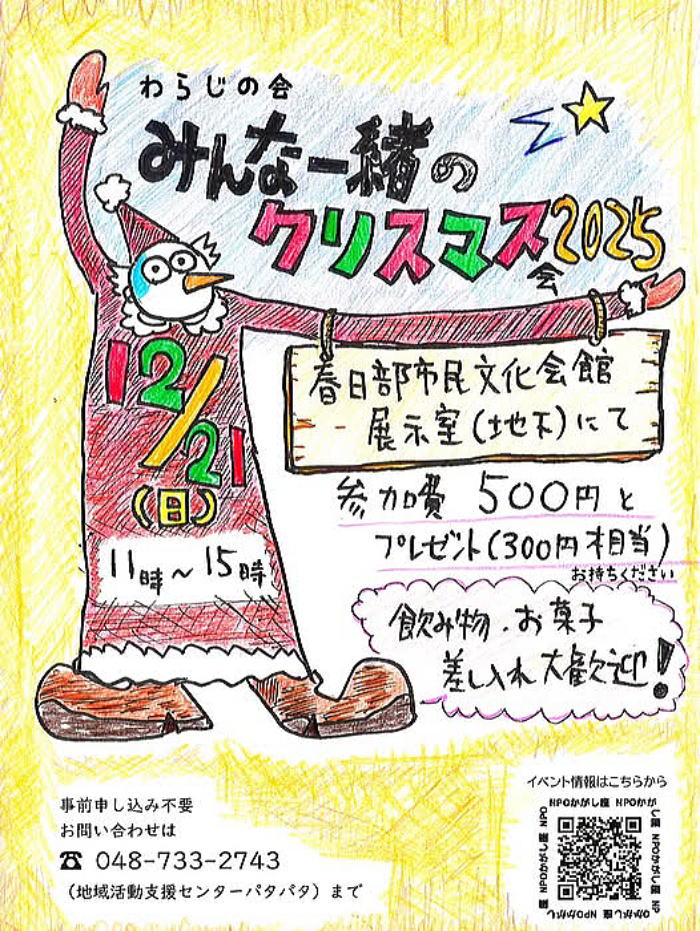 わらじの会
みんな一緒の
クリスマス会2025
12/21
(日)
11時～15時
春日部市民文化会館
展示室(地下)にて
参加費 500円と
プレゼント(300円相当)
お持ちください
飲み物.お菓子
差し入れ大歓迎!
事前申し込み不要
お問い合わせは
☎ 048-733-2743
（地域活動支援センターパタパタ）まで
イベント情報はこちらから
NPOかがし座 NPOかがし座 NPOかがし座 NP
Oかがし座 NPOかがし座 NPOかがし座 NPO